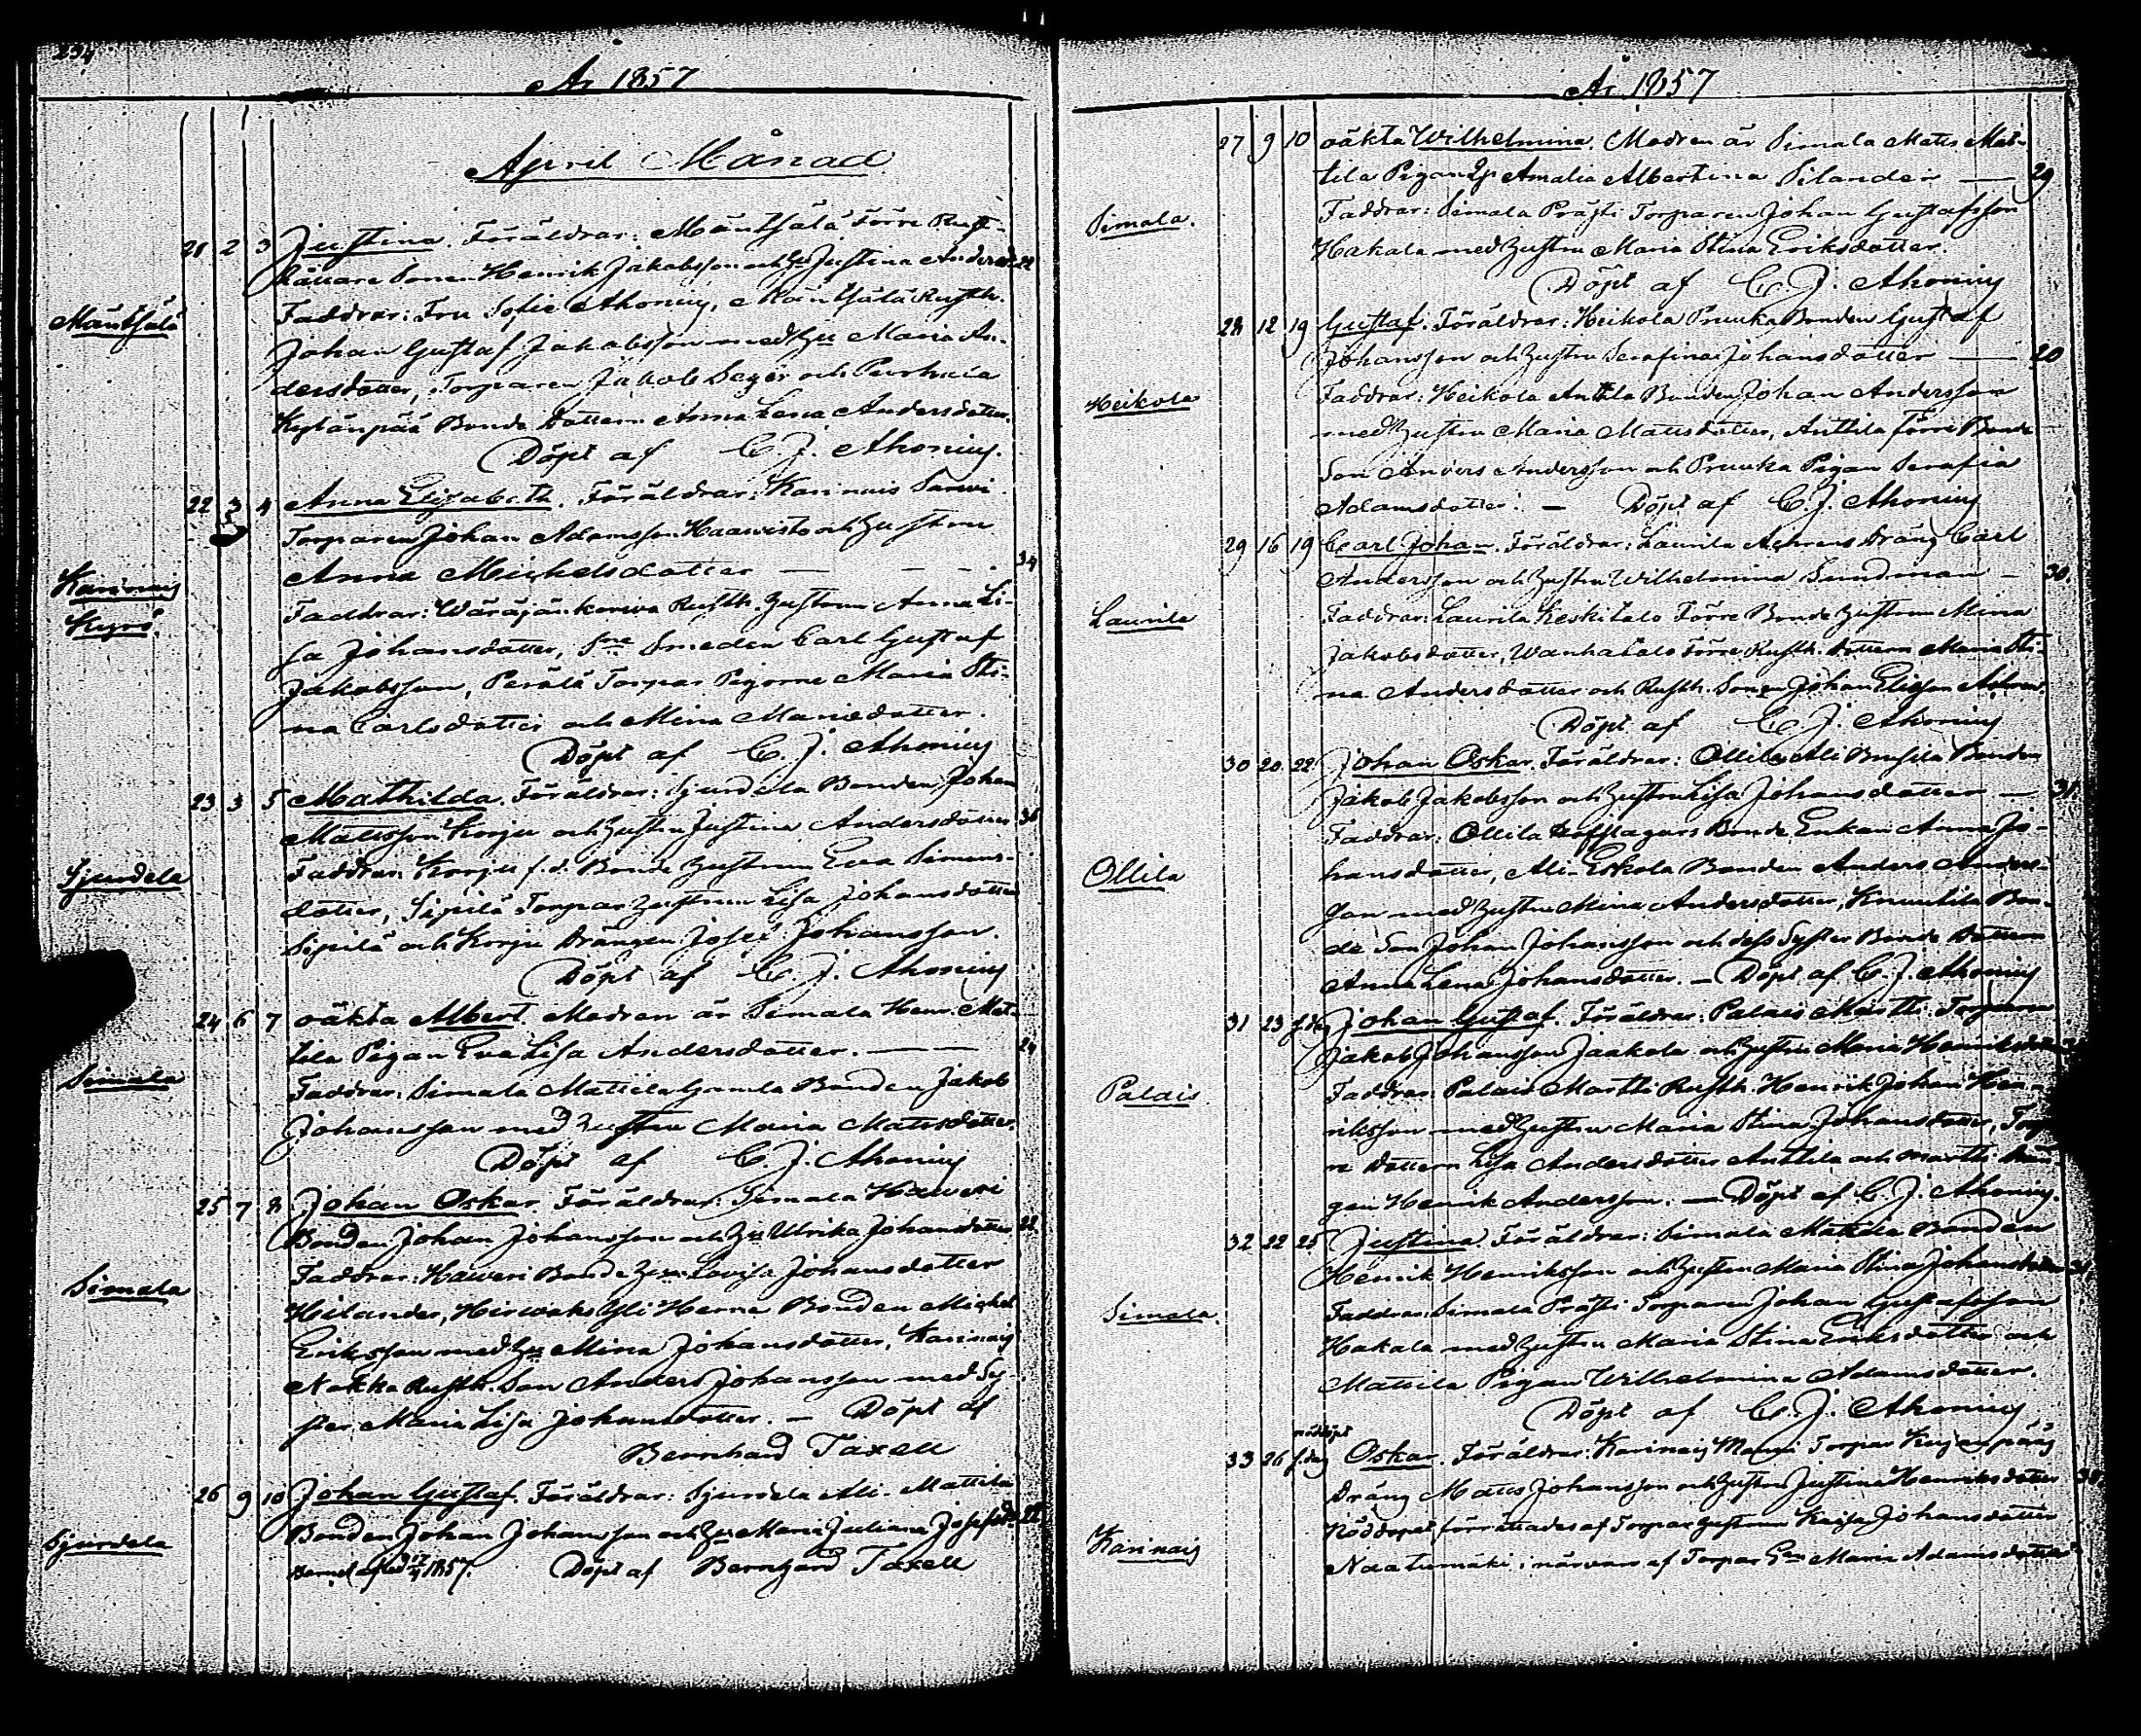 År 1857
April Månad
Mäntsälä
21 2 3 Justina. Föräldrar: Mäntsälä Förre Rust-
hållare Sonen Henrik Jakobsson och Hu Justina Andersd. 22
Faddrar: Fru Sofie Ahonius, Mäntsälä Rusth.
Johan Gustaf Jakobsson med Hu Maria An-
dersdotter, Torparen Jakob Seger och
Kylänpää Bonde Dottern Anna Lena Andersdotter.
Döpt af C. J. Ahonius.
Karinais
Kyrö.
22 3 4 Anna Elisabeth. Föräldrar: Karinais
Torparen Johan Adamsson Haawisto och Hustrun
Anna Michelsdotter — — — 34
Faddrar: Rusth. Hustrun Anna Li-
sa Johansdotter, Smeden Carl Gustaf
Jakobsson, Perälä Torpar Pigorne Maria Sti-
na Carlsdotter och Mina Mariedotter.
Döpt af C. J. Ahonius
Sjurdela
23 3 5 Mathilda. Föräldrar: Sjurdela Bonden Johan
Mattsson Korju och Hustru Justina Andersdotter
Faddrar: Korju f.d. Bonde Hustrun Eva Simons-
dotter, Sipilä Torpar Hustrun Lisa Johansdotter
Sipilä och Korju Drängen Josef Johansson.
Döpt af C. J. Ahonius
Simala
24 6 7 oäkta Albert. Modren är Simala Henr. Mat-
tila Pigan Eva Lisa Andersdotter. — — 24
Faddrar: Simala Mattila Gamla Bonden Jakob
Johansson med Hustru Maria Mattsdotter.
Döpt af C. J. Ahonius
Simala
25 7 8 Johan Oskar. Föräldrar: Simala Haweri
Bonden Johan Johansson och Hu Ulrika Johansdotter 22.
Faddrar: Haweri Bonde Lovisa Johansdotter
Heilander, Hirwoks Yli Herna Bonden Michel
Eriksson med Hu Mina Johansdotter, Karinais
Nokka Rusth. Son Anders Johansson med Sy-
ster Maria Lisa Johansdotter. — Döpt af
Bernhard Taxell
Sjurdela
26 9 10 Johan Gustaf. Föräldrar: Sjurdela Ali-Mattila
Bonden Johan Johansson och Hu Maria Juliana Josefsd. 22
Barnet afled 1857. Döpt af Bernhard Taxell
År 1857
Simala.
27 9 10 oäkta Wilhelmina. Modren är Simala Matts Mat-
tila Pigan Amalia Albertina Silander — 29
Faddrar: Simala Präjti Torparen Johan Gustafsson
Hakala med Hustru Maria Stina Eriksdotter.
Döpt af C. J. Ahonius
Heikola
28 12 19 Gustaf. Föräldrar: Heikola Pruuka Bonden Gustaf
Johansson och Hustru Serafina Johansdotter — 20
Faddrar: Heikola Anttila Bonden Johan Andersson
med Hustru Maria Mattsdotter, Anttila förre Bonde
Son Anders Andersson och Pruuka Pigan Serafia
Adamsdotter. — Döpt af C. J. Ahonius
Laurila
29 16 19 Carl Johan. Föräldrar: Laurila Dräng Carl
Andersson och Hustru Wilhelmina Sundman — 30.
Faddrar: Laurila Keskitalo Förre Bonde Hustrun Mina
Jakobsdotter, Wanhatalo Förre Rusth. Dottern Maria Sti-
na Andersdotter och Rusth. Sonen Johan
Döpt af C. J. Ahonius
Ollila
30 20 22 Johan Oskar. Föräldrar: Ollila Ali Bonden
Jakob Jakobsson och Hustru Lisa Johansdotter — 31.
Faddrar: Ollila Bonde Enkan Anna Jo-
hansdotter, Ali-Eskola Bonden Anders Anders-
son med Hustru Mina Andersdotter, Knuutila Bon-
de Son Johan Johansson och dess Syster Bonde Dottern
Anna Lena Johansdotter. — Döpt af C. J. Ahonius
Palais.
31 23 s.dag Johan Gustaf. Föräldrar: Palais Martti Torparen
Jakob Johansson Jaakola och Hustru Maria Henriksdotter
Faddrar: Palais Martti Rusth. Henrik Johan Hen-
riksson med Hustru Maria Stina Johansdotter, Torpa-
re Dottern Lisa Andersdotter Anttila och Martti Drän-
gen Henrik Andersson. — Döpt af C. J. Ahonius.
Simala.
32 22 25 Justina. Föräldrar: Simala Mattila Bonden
Henrik Henriksson och Hustru Maria Stina Johansdotter
Faddrar: Simala Präjti Torparen Johan Gustafsson
Hakala med Hustru Maria Stina Eriksdotter och
Mattila Pigan Wilhelmina Adamsdotter.
Döpt af C. J. Ahonius
Karinais
nöddöpt
33 26 s.dag Oskar. Föräldrar: Karinais Torpar
Dräng Matts Johansson och Hustru Justina Henriksdotter
Nöddopet förrättades af Torpar Hustrun Kajsa Johansdotter
i närvaro af Torpar Maria Adamsdotter